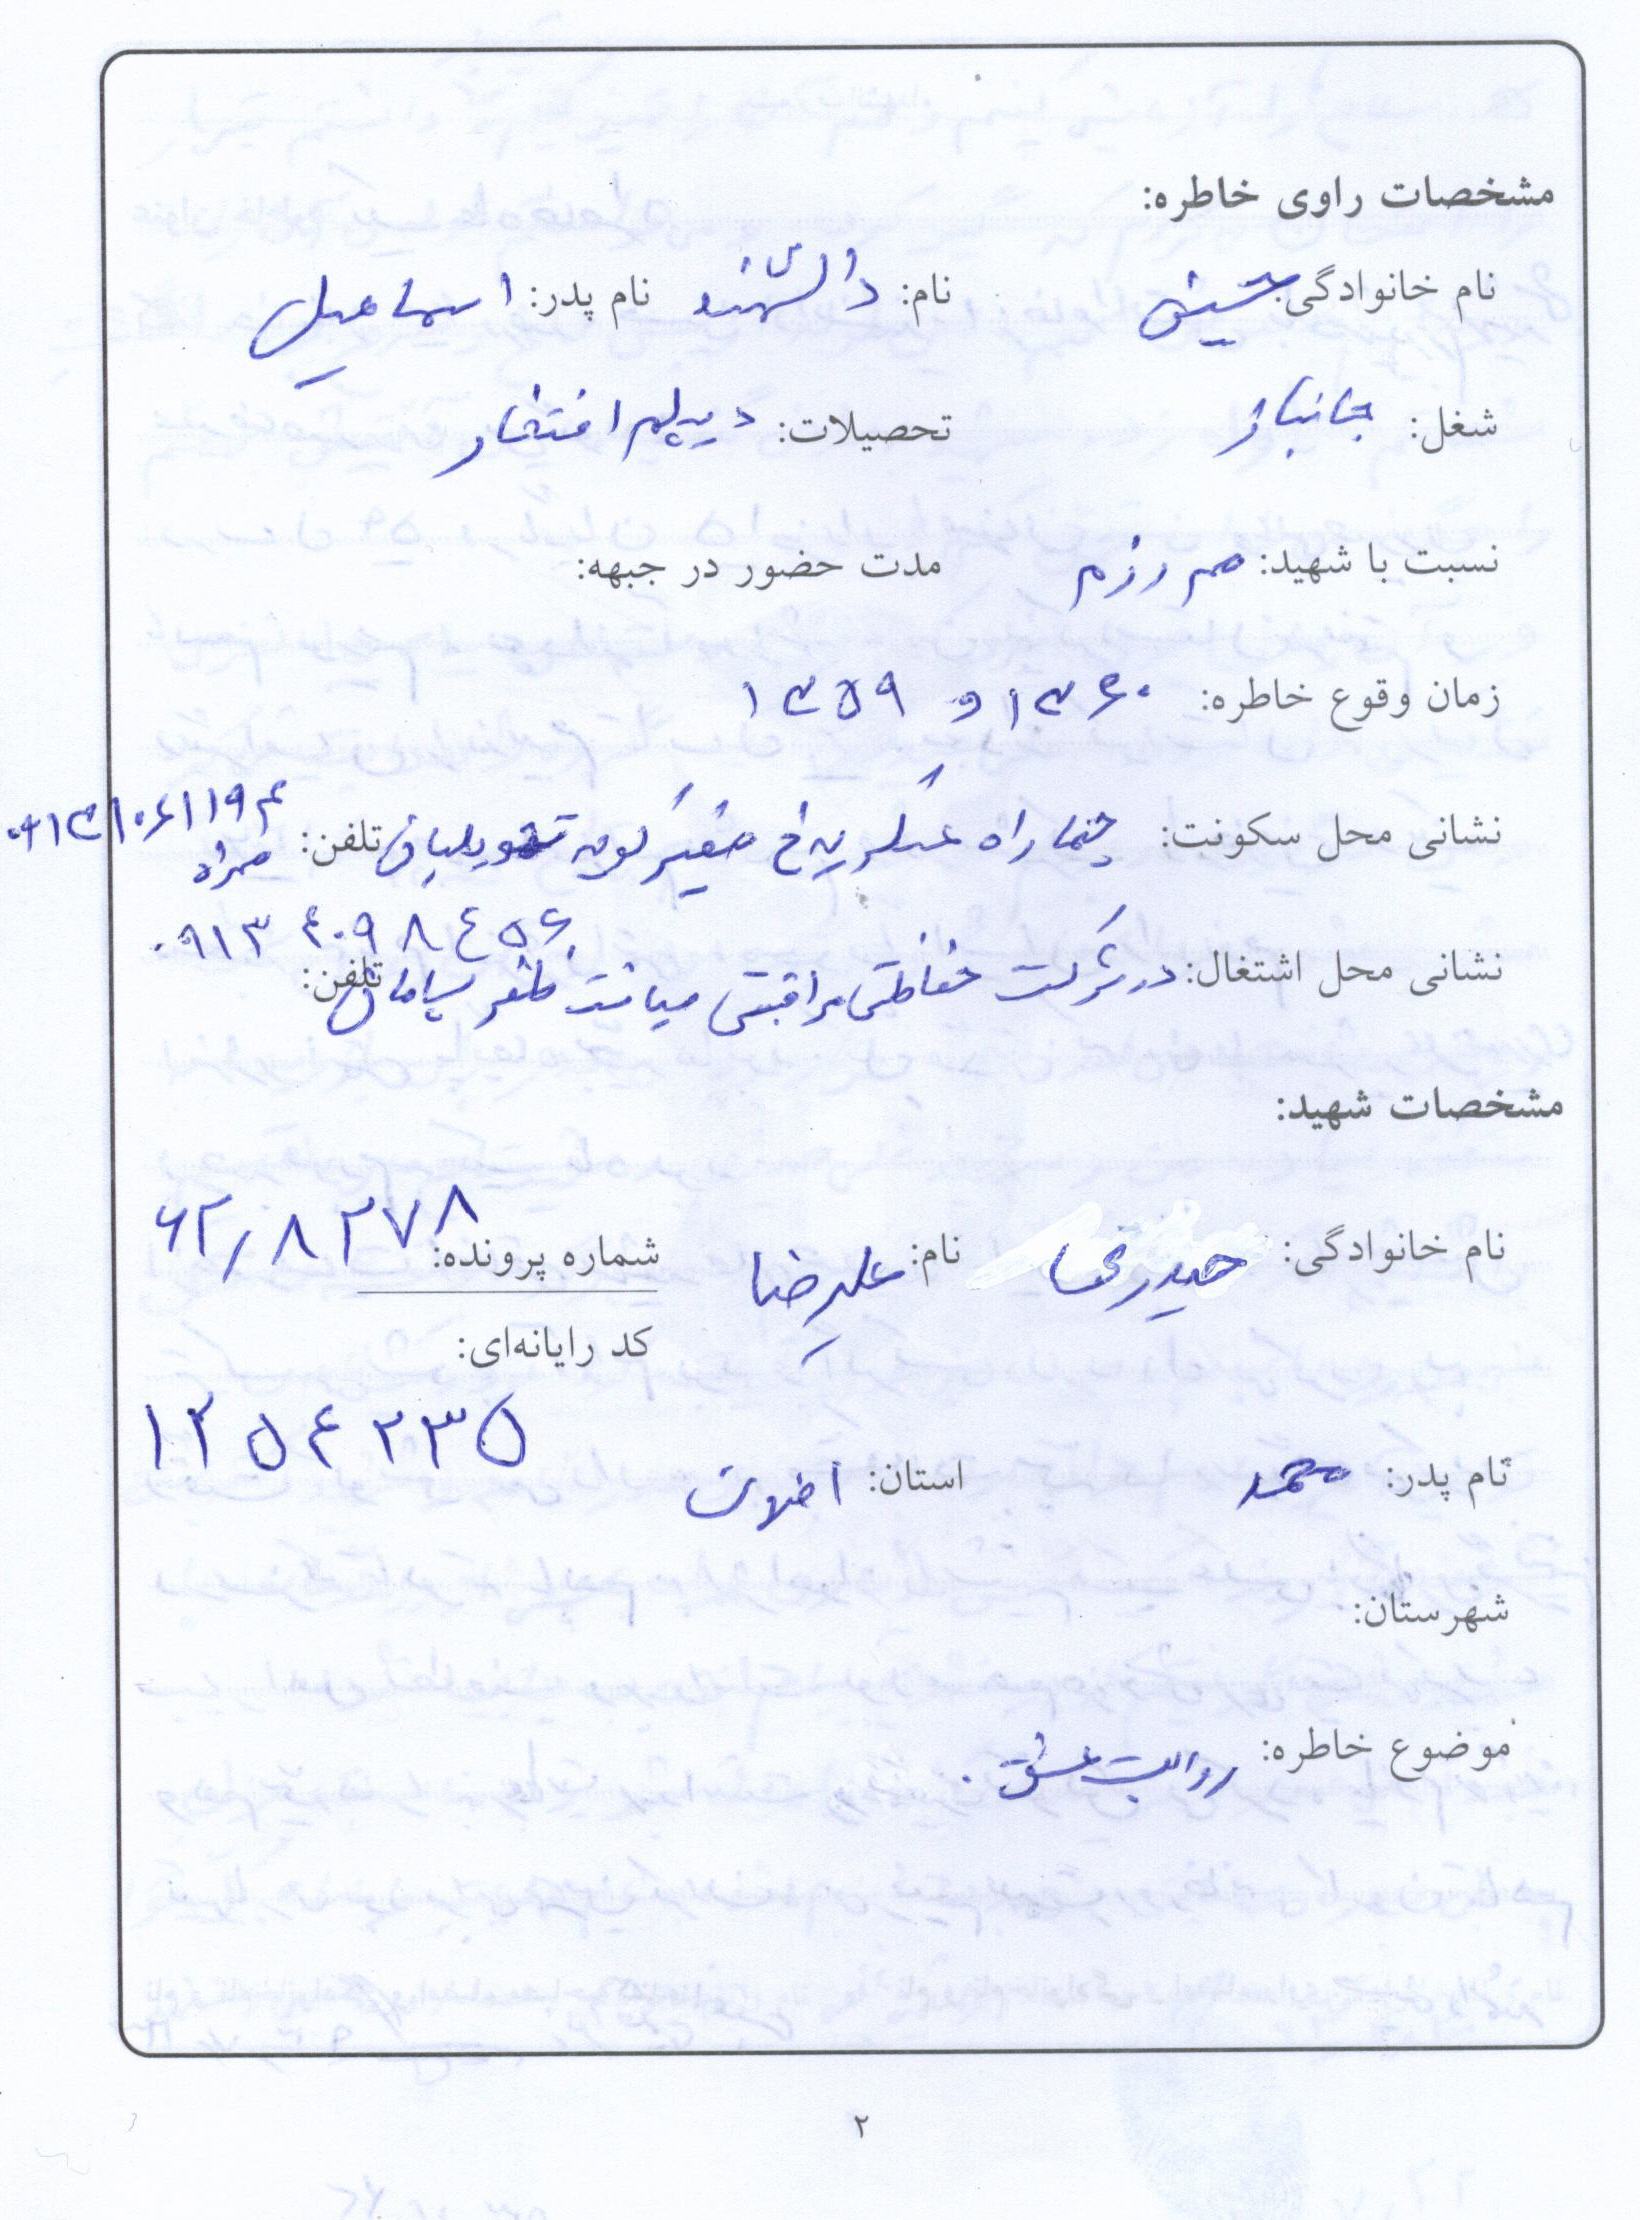 مشخصات راوی خاطره:
نام خانوادگی: حسینی نام: دانشمند نام پدر: اسماعیل
شغل: جانباز تحصیلات: دیپلم افتخار
نسبت با شهید: هم رزم مدت حضور در جبهه:
زمان وقوع خاطره: ۱۳۶۰ و ۱۳۵۹
نشانی محل سکونت: چهار راه عسگریه خ صغیر کوچه تلفن: همراه ۰۹۱۳۱۰۶۱۱۹۴
۰۹۱۳۴۰۹۸۴۵۶
نشانی محل اشتغال: در شرکت حفاظتی مراقبتی میانت ظفر سپاهان تلفن:
مشخصات شهید:
نام خانوادگی: حیدری نام: علیرضا شماره پرونده: ۶۲/۸۲۷۸
کد رایانه‌ای:
۱۲۵۴۲۳۵
نام پدر: محمد استان: اصفهان
شهرستان:
موضوع خاطره: روایت عشق.
۲